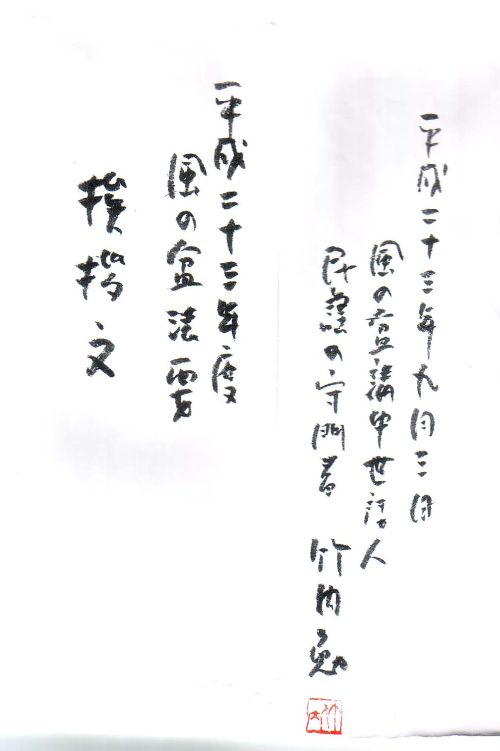 平成二十三年九月三日
風の盆講中世話人
民謡の 竹内勉
平成二十三年度
風の盆法要
挨拶文